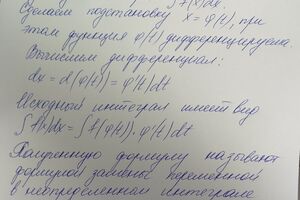 ∫f(x)dx.
Сделаем подстановку x = φ(t), при
этом функция φ(t) дифференцируема.
Вычислим дифференциал:
dx = d(φ(t)) = φ'(t)dt
Исходный интеграл имеет вид
∫f(x)dx = ∫f(φ(t))·φ'(t)dt
Полученную формулу называют
формулой замены переменной
в неопределенном интеграле